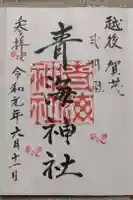 越後 賀茂
式内社
青海神社
参拝
令和元年六月十一日